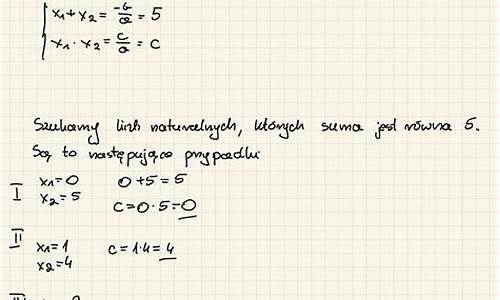 x₁+x₂ = -b/a = 5
x₁·x₂ = c/a = c
Szukamy liczb naturalnych, których suma jest równa 5.
Są to następujące przypadki
I x₁=0 0+5=5
x₂=5 c=0·5=0
II x₁=1 c=1·4=4
x₂=4